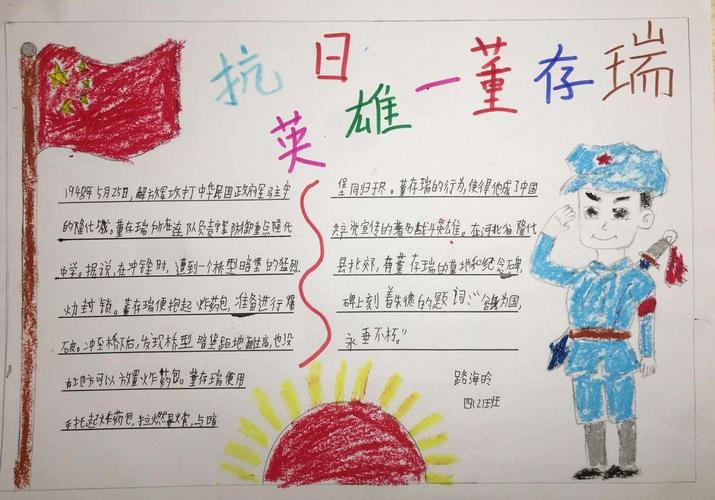 抗日
英雄一董存瑞
1948年5月25日,解放军攻打中华民国政府军驻守
的隆化城。董存瑞所在连队负责防御重点隆化
中学。据说,在冲锋时,遭到一个桥型暗堡的猛烈
火力封锁。董存瑞便抱起炸药包,准备进行爆
破。冲至桥下后,发现桥型暗堡距地面高,也没
有地方可以放置炸药包。董存瑞使用
手托起炸药包,拉燃导火索,与暗
堡同归于尽。董存瑞的行为,使得他成了中国
共产党宣传的著名战斗英雄。在河北省隆化
县北郊,有董存瑞的墓地和纪念碑,
碑上刻着朱德的题词:“舍身为国,
永垂不朽。”
路海
四(2)班